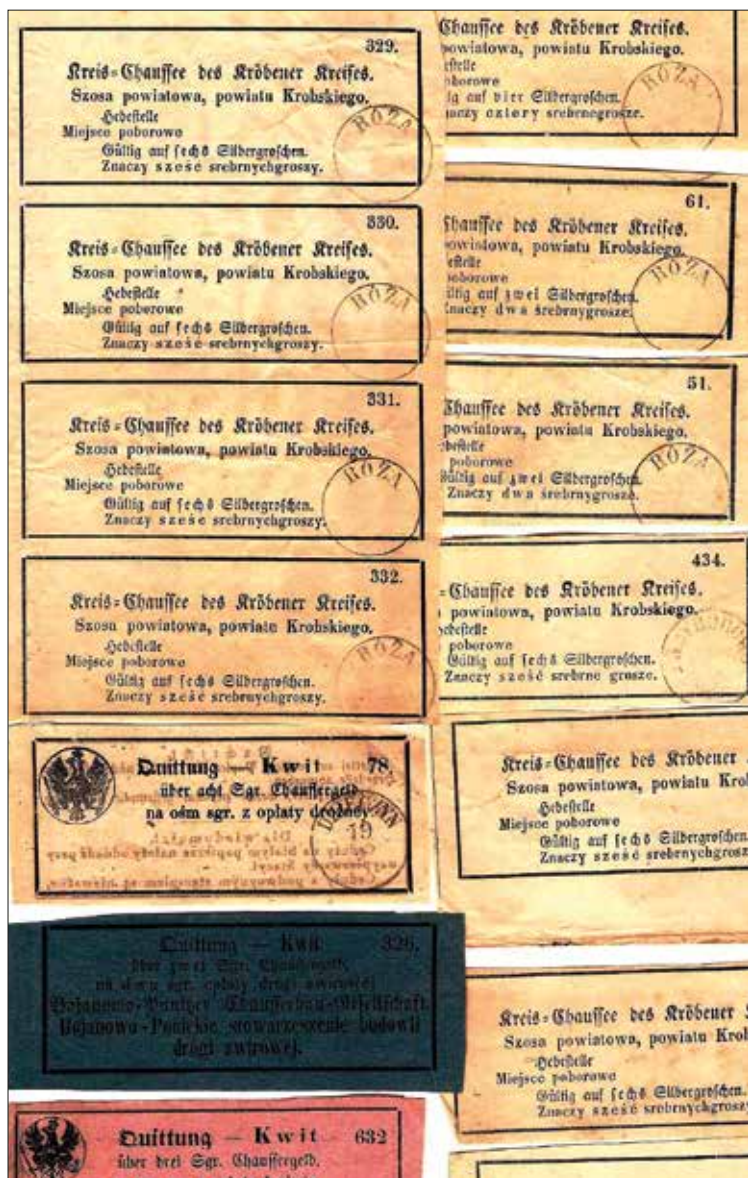 329.
Kreis=Chaussee des Kröbener Kreises.
Szosa powiatowa, powiatu Krobskiego.
Hebestelle
Miejsce poborowe
Gültig auf sechs Silbergroschen.
Znaczy sześć srebrnychgroszy.
RÓŻA
330.
Kreis=Chaussee des Kröbener Kreises.
Szosa powiatowa, powiatu Krobskiego.
Hebestelle
Miejsce poborowe
Gültig auf sechs Silbergroschen.
Znaczy sześć srebrnychgroszy.
RÓŻA
331.
Kreis=Chaussee des Kröbener Kreises.
Szosa powiatowa, powiatu Krobskiego.
Hebestelle
Miejsce poborowe
Gültig auf sechs Silbergroschen.
Znaczy sześć srebrnychgroszy.
RÓŻA
332.
Kreis=Chaussee des Kröbener Kreises.
Szosa powiatowa, powiatu Krobskiego.
Hebestelle
Miejsce poborowe
Gültig auf sechs Silbergroschen.
Znaczy sześć srebrnychgroszy.
RÓŻA
Quittung — Kwit 78.
über acht Sgr. Chausseegeld
na ośm sgr. z opłaty drożnéj
19
Quittung — Kwit 326.
über zwei Sgr. Chausseegeld.
na dwa sgr. opłaty drogi żwirowéj
Bojanowo-Punitzer Chausseebau-Gesellschaft.
Bojanowo-Ponickie stowarzeszenie budowli
drogi żwirowej.
Quittung — Kwit 632
über drei Sgr. Chausseegeld.
Chaussee des Kröbener Kreises.
powiatowa, powiatu Krobskiego.
auf vier Silbergroschen.
cztery srebrnegrosze.
RÓŻA
61.
Chaussee des Kröbener Kreises.
powiatowa, powiatu Krobskiego.
poborowe
auf zwei Silbergroschen.
Znaczy dwa śrebrnygrosze.
RÓŻA
51.
Chaussee des Kröbener Kreises.
powiatowa, powiatu Krobskiego.
poborowe
Gültig auf zwei Silbergroschen.
Znaczy dwa śrebrnygrosze.
RÓŻA
434.
=Chaussee des Kröbener Kreises.
powiatowa, powiatu Krobskiego.
poborowe
Gültig auf sechs Silbergroschen.
Znaczy sześć srebrne grosze.
Kreis=Chaussee des Kröbener
Szosa powiatowa, powiatu Krob
Hebestelle
Miejsce poborowe
Gültig auf sechs Silbergroschen.
Znaczy sześć srebrnychgrosz
Kreis=Chaussee des Kröbener
Szosa powiatowa, powiatu Krob
Hebestelle
Miejsce poborowe
Gültig auf sechs Silbergroschen.
Znaczy sześć srebrnychgroszy